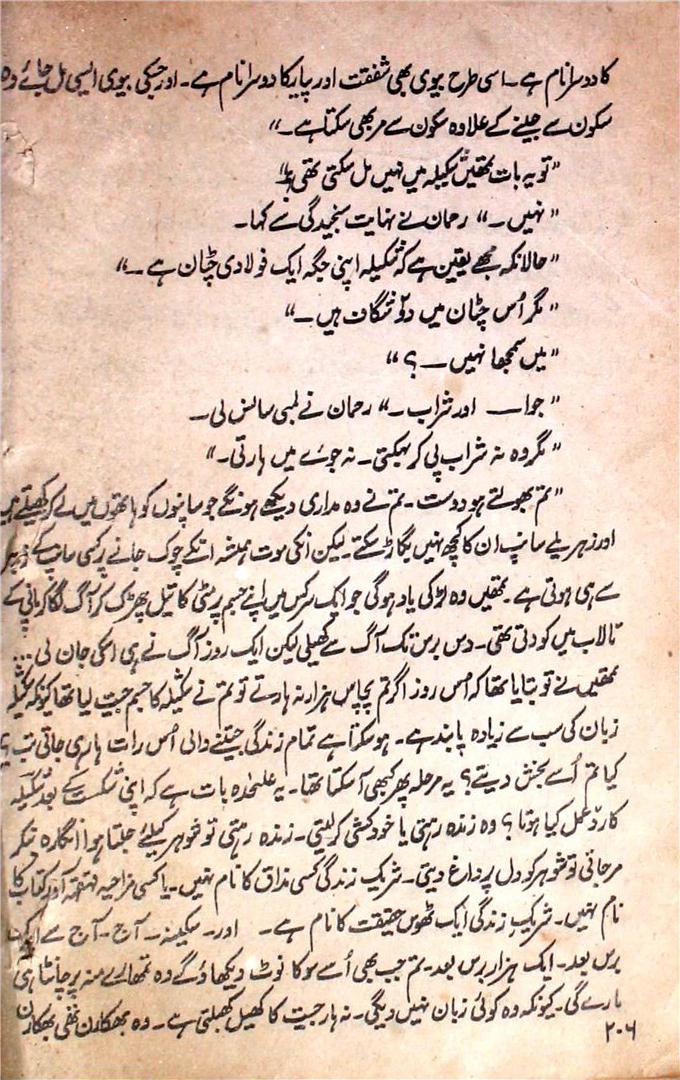 کا دوسرا نام ہے۔ اسی طرح بیوی بھی شفقت اور پیار کا دوسرا نام ہے۔ اور جسکی بیوی ایسی مل جائے وہ
سکون سے جینے کے علاوہ سکون سے مر بھی سکتا ہے۔“
”تو یہ بات تمھیں شکیلہ میں نہیں مل سکتی تھی؟“
”نہیں۔“ رحمان نے نہایت سنجیدگی سے کہا۔
”حالانکہ مجھے یقین ہے کہ شکیلہ اپنی جگہ ایک فولادی چٹان ہے۔“
”مگر اُس چٹان میں دو شگاف ہیں۔“
”میں سمجھا نہیں۔؟“
”جوا۔ اور شراب۔“ رحمان نے لمبی سانس لی۔
”مگر وہ نہ شراب پی کر بہکتی۔ نہ جوئے میں ہارتی۔“
”تم بھولتے ہو دوست۔ تم نے وہ مداری دیکھے ہونگے جو سانپوں کو ہاتھوں میں لے کر کھیلتے ہیں
اور زہریلے سانپ ان کا کچھ نہیں بگاڑ سکتے۔ لیکن انکی موت ہمیشہ انکے چوک جانے پر کسی سانپ کے زہر
سے ہی ہوتی ہے۔ تمھیں وہ لڑکی یاد ہوگی جو ایک سرکس میں اپنے جسم پر مٹی کا تیل چھڑک کر آگ لگا کر پانی کے
تالاب میں کودتی تھی۔ دس برس تک آگ سے کھیلی لیکن ایک روز آگ نے ہی اسکی جان لی...
تمھیں نے تو بتایا تھا کہ اُس روز اگر تم پچاس ہزار نہ ہارتے تو تم نے شکیلہ کا جسم جیت لیا تھا کیونکہ شکیلہ
زبان کی سب سے زیادہ پابند ہے۔ ہو سکتا ہے تمام زندگی جیتنے والی اُس رات ہاری جاتی تب؟
کیا تم اُسے بخش دیتے؟ یہ مرحلہ پھر کبھی آ سکتا تھا۔ یہ علیٰحدہ بات ہے کہ اپنی شکست کے بعد شکیلہ
کا ردِّ عمل کیا ہوتا؟ وہ زندہ رہتی یا خودکشی کرلیتی۔ زندہ رہتی تو شوہر کیلئے جلتا ہوا انگارہ بنکر
مر جاتی تو شوہر کو دل پر داغ دیتی۔ شریک زندگی کسی مذاق کا نام نہیں۔ یا کسی مزاحیہ قہقہہ آور کتاب کا
نام نہیں۔ شریکِ زندگی ایک ٹھوس حقیقت کا نام ہے۔ اور۔ سکینہ۔ آج۔ آج سے ایک
برس بعد۔ ایک ہزار برس بعد۔ تم جب بھی اُسے سو کا نوٹ دیکھاؤ گے وہ تمھارے منہ پر چانٹا ہی
مارے گی۔ کیونکہ وہ کوئی زبان نہیں دیگی۔ نہ ہار جیت کا کھیل کھیلتی ہے۔ وہ بھکارن تھی بھکارن
۲۰۶